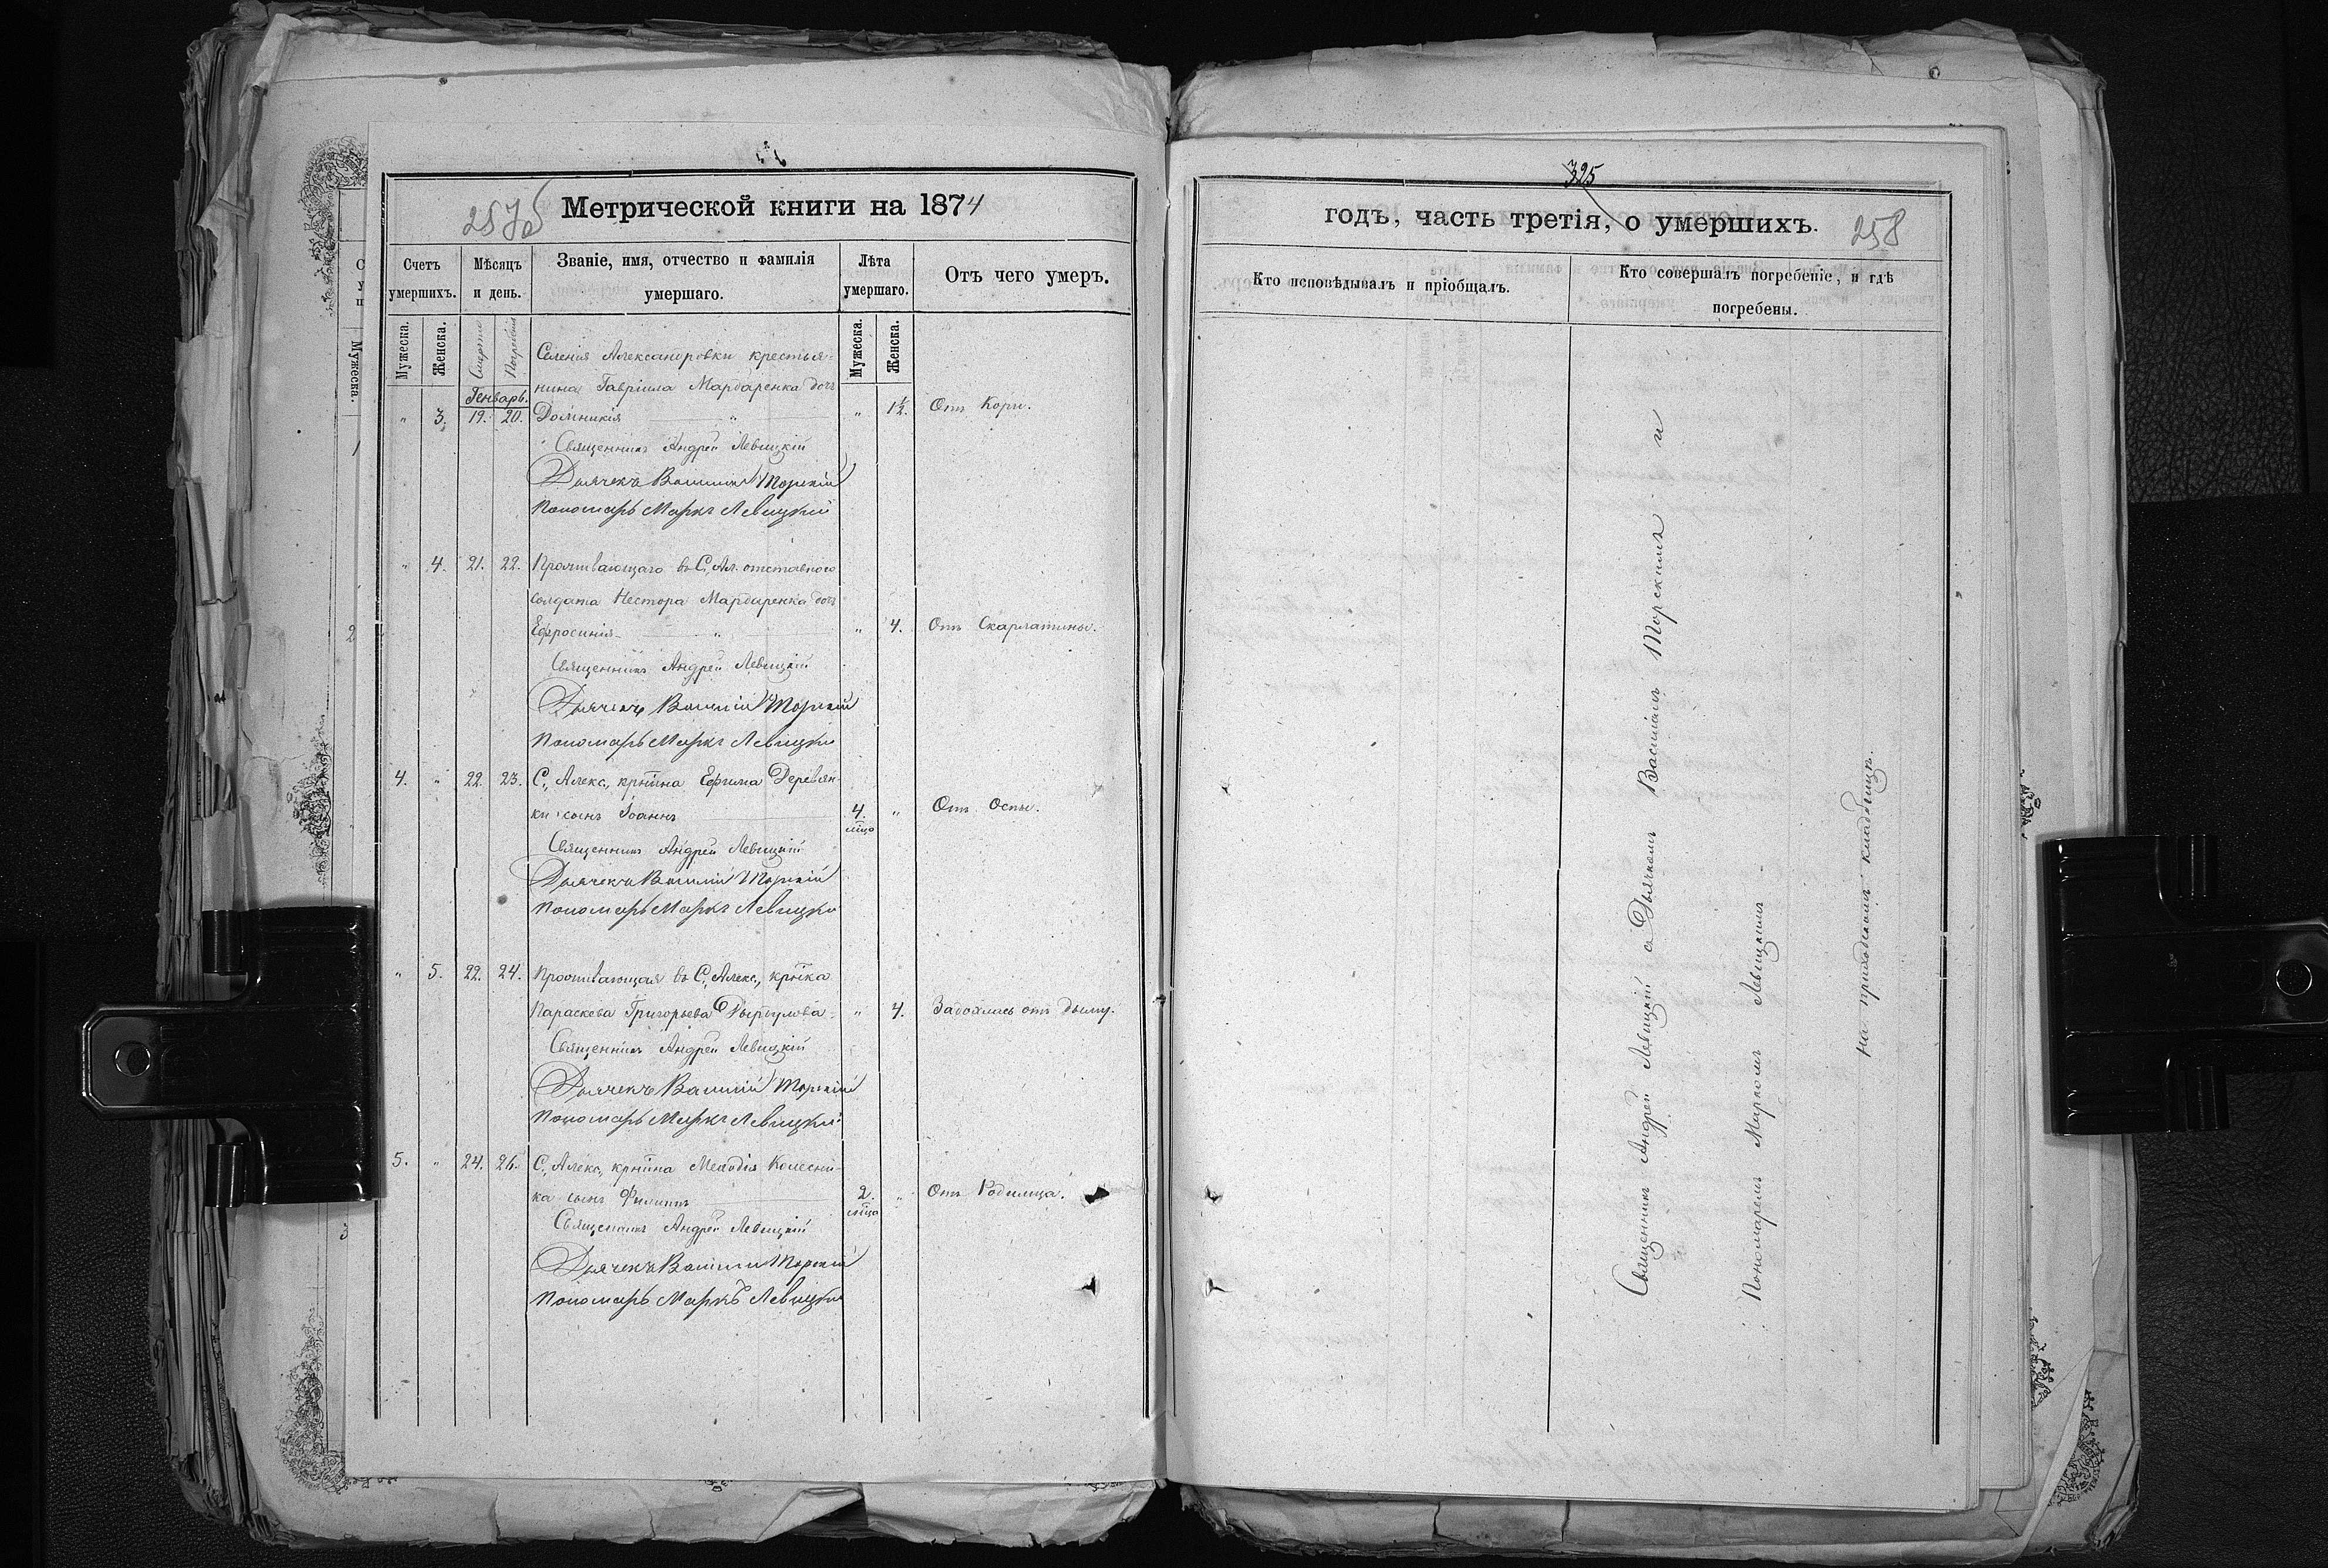 257об
Метрической книги на 1874
Счетъ умершихъ.
Мѣсяцъ и день.
Званіе, имя, отчество и фамилія умершаго.
Лѣта умершаго.
Отъ чего умеръ.
Мужеска.
Женска.
Смерти
Погребенія
Мужеска.
Женска.
Генварь.
Селенія Александровки крестья-
нина Гавріила Мардаренка дочь
" 3. 19. 20. Домникія " " 1½. Отъ Кори.
Священникъ Андрей Левицкій
Дьячекъ Василій Торскій
Пономарь Маркъ Левицкій
" 4. 21. 22. Проживающаго въ С. Ал. отставного
солдата Нестора Мардаренка дочь
Ефросинія " " 4. Отъ Скарлатины.
Священникъ Андрей Левицкій
Дьячекъ Василій Торскій
Пономарь Маркъ Левицкій
4. " 22. 23. С. Алекс., кр-нина Ефима Деревян-
ки сынъ Іоаннъ 4. м-ца " Отъ Оспы.
Священникъ Андрей Левицкій
Дьячекъ Василій Торскій
Пономарь Маркъ Левицкій
" 5. 22. 24. Проживающая въ С. Алекс., кр-нка
Параскева Григорьева " 4. Задохлась отъ дыму.
Священникъ Андрей Левицкій
Дьячекъ Василій Торскій
Пономарь Маркъ Левицкій
5. " 24. 26. С. Алекс., кр-нина Меѳодія Колесни-
ка сынъ Филиппъ 2. м-ца " Отъ Родимца.
Священникъ Андрей Левицкій
Дьячекъ Василій Торскій
Пономарь Маркъ Левицкій
325
годъ, часть третія, о умершихъ.
258
Кто исповѣдывалъ и пріобщалъ.
Кто совершалъ погребеніе, и гдѣ погребены.
Священникъ Андрей Левицкій съ Дьячкомъ Василіемъ Торскимъ и
Пономаремъ Маркомъ Левицкимъ
на приходскомъ кладбищѣ.